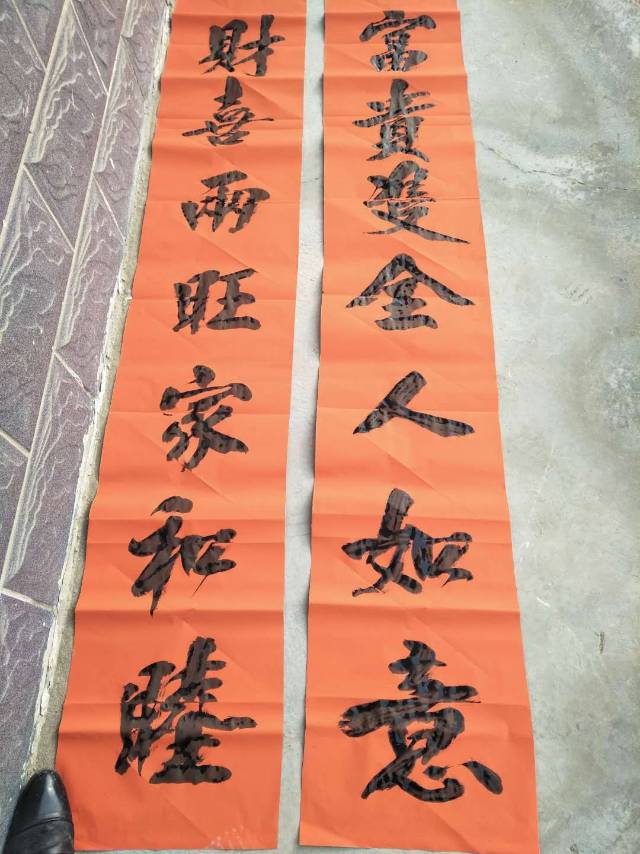 富貴雙全人如意
財喜兩旺家和睦